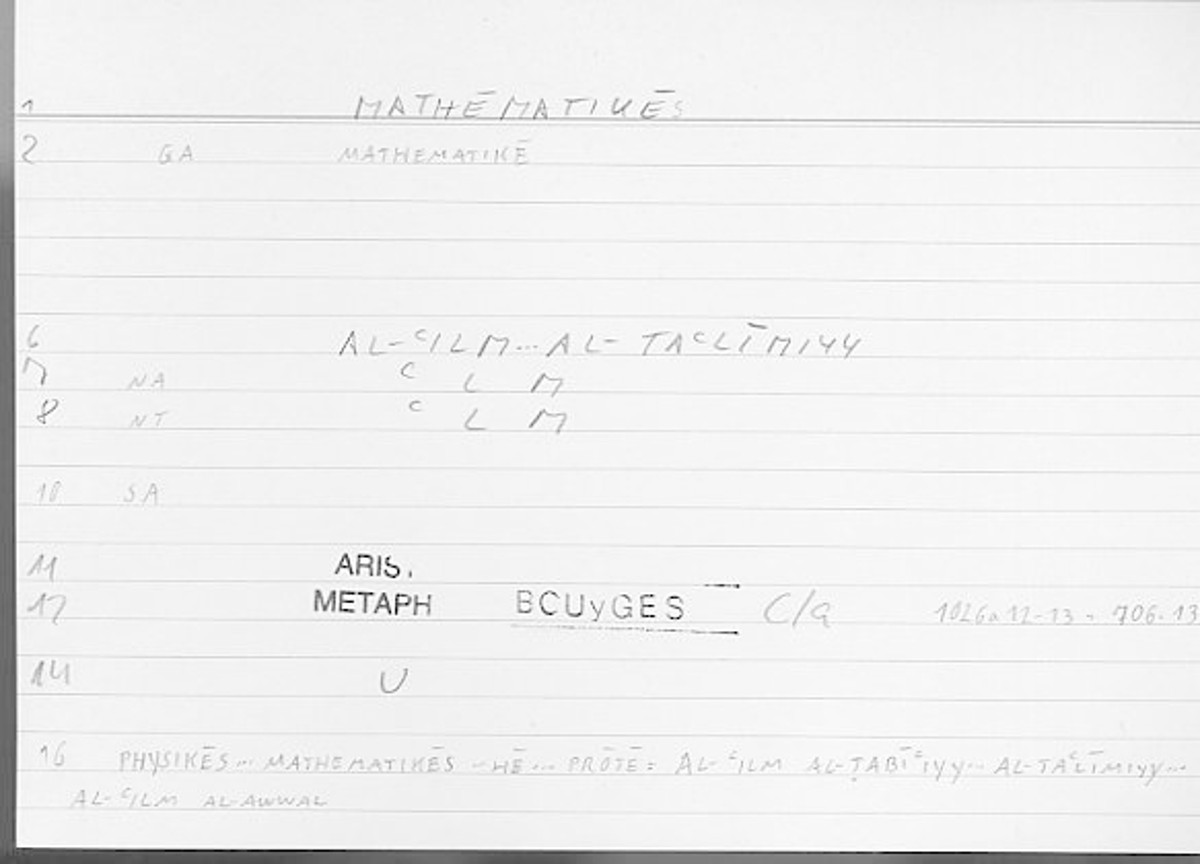 1 MATHĒMATIKĒS
2 GA MATHEMATIKĒ
6 AL-ʿILM... AL-TAʿLĪMIYY
7 NA ʿ L M
8 NT ʿ L M
10 SA
11 ARIS.
12 METAPH BCUyGES C/a 1026a12-13 = 706.13
14 U
16 PHYSIKĒS... MATHEMATIKĒS ... HĒ... PRŌTĒ = AL-ʿILM AL-ṬABĪʿIYY... AL-TAʿLĪMIYY...
AL-ʿILM AL-AWWAL